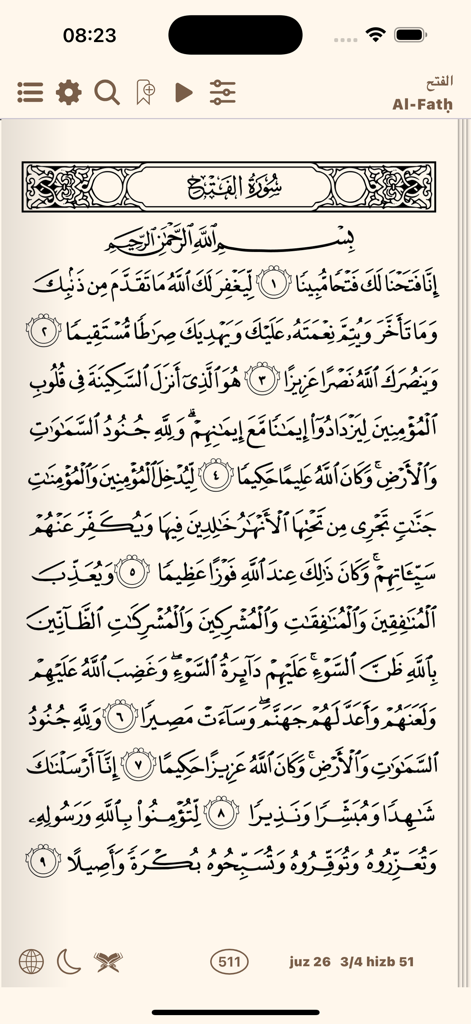 08:23
الفتح
Al-Fatḥ
سُورَةُ الفَتْحِ
بِسْمِ ٱللَّهِ ٱلرَّحْمَٰنِ ٱلرَّحِيمِ
إِنَّا فَتَحْنَا لَكَ فَتْحًا مُّبِينًا ١ لِّيَغْفِرَ لَكَ ٱللَّهُ مَا تَقَدَّمَ مِن ذَنۢبِكَ
وَمَا تَأَخَّرَ وَيُتِمَّ نِعْمَتَهُۥ عَلَيْكَ وَيَهْدِيَكَ صِرَٰطًا مُّسْتَقِيمًا ٢
وَيَنصُرَكَ ٱللَّهُ نَصْرًا عَزِيزًا ٣ هُوَ ٱلَّذِىٓ أَنزَلَ ٱلسَّكِينَةَ فِى قُلُوبِ
ٱلْمُؤْمِنِينَ لِيَزْدَادُوٓا۟ إِيمَٰنًا مَّعَ إِيمَٰنِهِمْ ۗ وَلِلَّهِ جُنُودُ ٱلسَّمَٰوَٰتِ
وَٱلْأَرْضِ ۚ وَكَانَ ٱللَّهُ عَلِيمًا حَكِيمًا ٤ لِّيُدْخِلَ ٱلْمُؤْمِنِينَ وَٱلْمُؤْمِنَٰتِ
جَنَّٰتٍ تَجْرِى مِن تَحْتِهَا ٱلْأَنْهَٰرُ خَٰلِدِينَ فِيهَا وَيُكَفِّرَ عَنْهُمْ
سَيِّـَٔاتِهِمْ ۚ وَكَانَ ذَٰلِكَ عِندَ ٱللَّهِ فَوْزًا عَظِيمًا ٥ وَيُعَذِّبَ
ٱلْمُنَٰفِقِينَ وَٱلْمُنَٰفِقَٰتِ وَٱلْمُشْرِكِينَ وَٱلْمُشْرِكَٰتِ ٱلظَّآنِّينَ
بِٱللَّهِ ظَنَّ ٱلسَّوْءِ ۚ عَلَيْهِمْ دَآئِرَةُ ٱلسَّوْءِ ۖ وَغَضِبَ ٱللَّهُ عَلَيْهِمْ
وَلَعَنَهُمْ وَأَعَدَّ لَهُمْ جَهَنَّمَ ۖ وَسَآءَتْ مَصِيرًا ٦ وَلِلَّهِ جُنُودُ
ٱلسَّمَٰوَٰتِ وَٱلْأَرْضِ ۚ وَكَانَ ٱللَّهُ عَزِيزًا حَكِيمًا ٧ إِنَّآ أَرْسَلْنَٰكَ
شَٰهِدًا وَمُبَشِّرًا وَنَذِيرًا ٨ لِّتُؤْمِنُوا۟ بِٱللَّهِ وَرَسُولِهِۦ
وَتُعَزِّرُوهُ وَتُوَقِّرُوهُ وَتُسَبِّحُوهُ بُكْرَةً وَأَصِيلًا ٩
511 juz 26 3/4 hizb 51